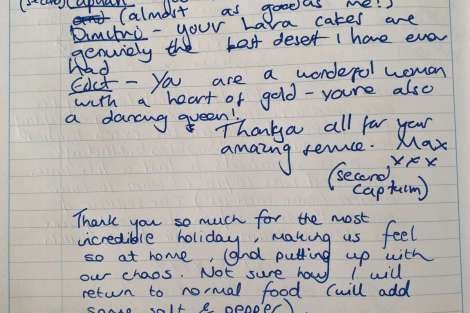 (second) Captain
and (almost as good as me!)
Dimitri - your Lava cakes are
genuinely the best desert I have ever
had
- You are a wonderful woman
with a heart of gold - youre also
a dancing queen!
Thankyou all for your
amazing service. Max
xxx
(second captain)
Thank you so much for the most
incredible holiday, making us feel
so at home, (and putting up with
our chaos. Not sure how I will
return to normal food (will add
some salt & pepper)